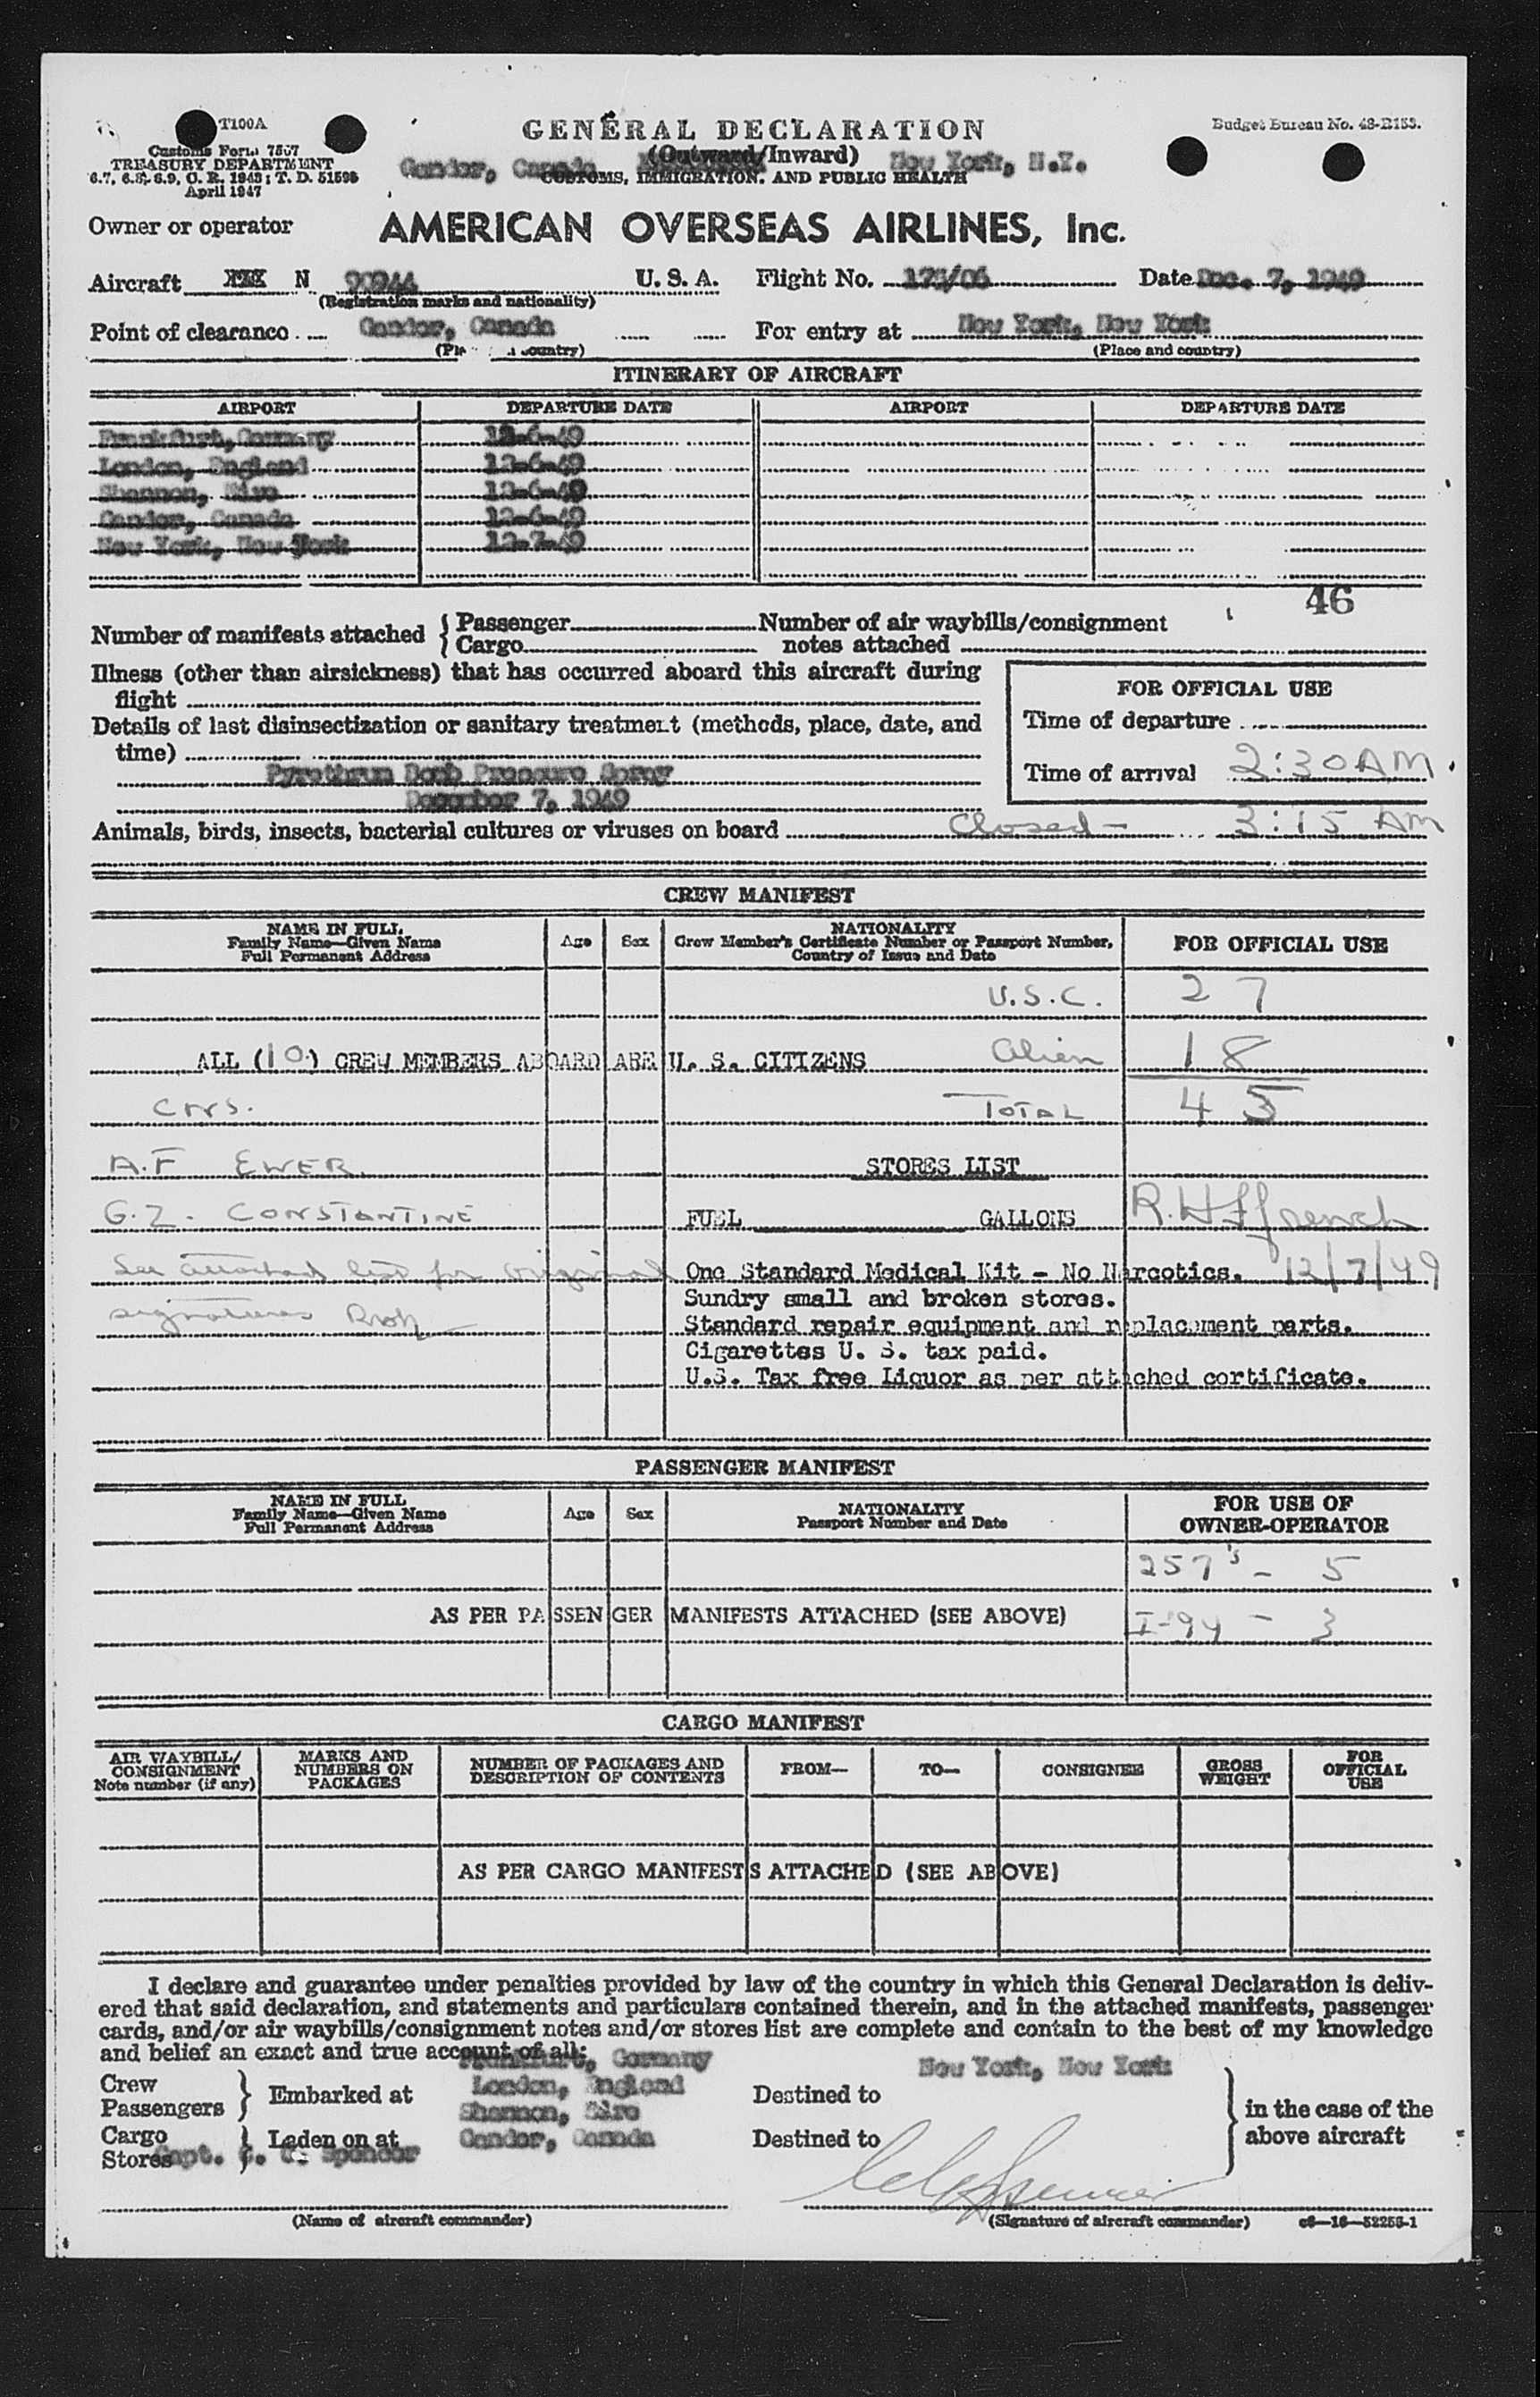 T100A
Customs Form 7507
TREASURY DEPARTMENT
6.7, 6.8, 6.9, C. R. 1943; T. D. 51595
April 1947
GENERAL DECLARATION
(Outward/Inward)
Budget Bureau No. 48-R153.
Gander, Canada New York, N.Y.
CUSTOMS, IMMIGRATION, AND PUBLIC HEALTH
Owner or operator AMERICAN OVERSEAS AIRLINES, Inc.
Aircraft XXX N 90944 U. S. A. Flight No. 175/06 Date Dec. 7, 1949
(Registration marks and nationality)
Point of clearance Gander, Canada For entry at New York, New York
(Place and country) (Place and country)
ITINERARY OF AIRCRAFT
AIRPORT DEPARTURE DATE AIRPORT DEPARTURE DATE
Frankfurt, Germany 12-6-49
London, England 12-6-49
Shannon, Eire 12-6-49
Gander, Canada 12-6-49
New York, New York 12-7-49
46
Number of manifests attached { Passenger Number of air waybills/consignment
Cargo notes attached
Illness (other than airsickness) that has occurred aboard this aircraft during
flight
Details of last disinsectization or sanitary treatment (methods, place, date, and
time)
Pyrethrum Bomb Pressure Spray
December 7, 1949
FOR OFFICIAL USE
Time of departure
Time of arrival 2:30 AM.
Animals, birds, insects, bacterial cultures or viruses on board Closed - 3:15 AM
CREW MANIFEST
NAME IN FULL
Family Name—Given Name
Full Permanent Address
Age Sex
NATIONALITY
Crew Member's Certificate Number or Passport Number,
Country of Issue and Date
FOR OFFICIAL USE
U.S.C. 27
ALL (10) CREW MEMBERS ABOARD ARE U. S. CITIZENS Alien 18
Total 45
A.F EWER STORES LIST
G.Z. CONSTANTINE FUEL GALLONS R.H. Ffrench
See attached list for original One Standard Medical Kit - No Narcotics. 12/7/49
signatures Sundry small and broken stores.
Standard repair equipment and replacement parts.
Cigarettes U. S. tax paid.
U.S. Tax free Liquor as per attached certificate.
PASSENGER MANIFEST
NAME IN FULL
Family Name—Given Name
Full Permanent Address
Age Sex
NATIONALITY
Passport Number and Date
FOR USE OF
OWNER-OPERATOR
257's - 5
AS PER PASSENGER MANIFESTS ATTACHED (SEE ABOVE) I-94 - 3
CARGO MANIFEST
AIR WAYBILL/
CONSIGNMENT
Note number (if any)
MARKS AND
NUMBERS ON
PACKAGES
NUMBER OF PACKAGES AND
DESCRIPTION OF CONTENTS
FROM— TO— CONSIGNEE
GROSS
WEIGHT
FOR
OFFICIAL
USE
AS PER CARGO MANIFESTS ATTACHED (SEE ABOVE)
I declare and guarantee under penalties provided by law of the country in which this General Declaration is deliv-
ered that said declaration, and statements and particulars contained therein, and in the attached manifests, passenger
cards, and/or air waybills/consignment notes and/or stores list are complete and contain to the best of my knowledge
and belief an exact and true account of all:
Frankfurt, Germany New York, New York
Crew
Passengers } Embarked at London, England Destined to
Shannon, Eire
in the case of the
above aircraft
Cargo
Stores } Laden on at Gander, Canada Destined to
Capt. Spencer
(Name of aircraft commander) (Signature of aircraft commander) c6—16—52256-1